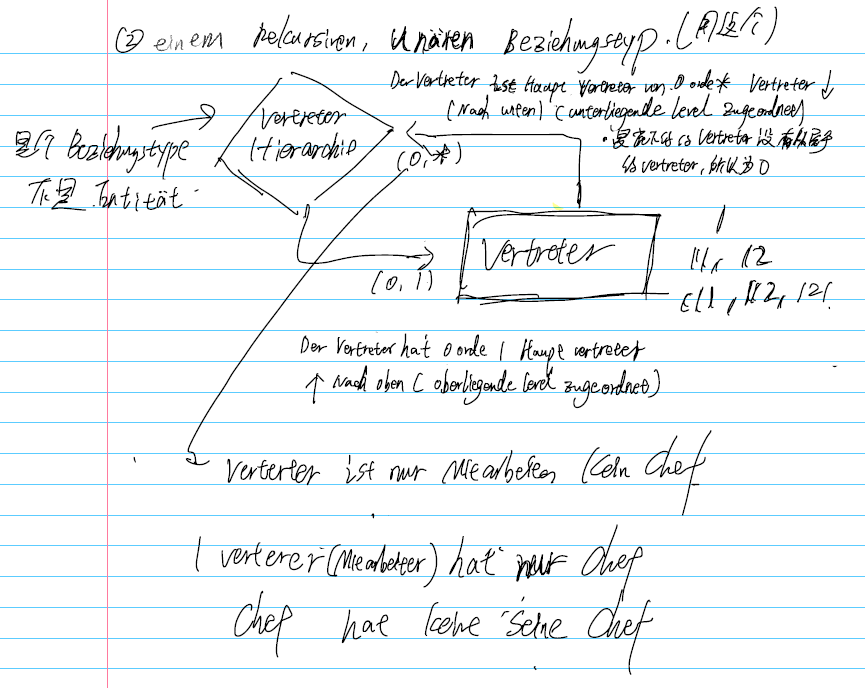 ② einem rekursiven, unären Beziehungstyp. (用这个)
Der Vertreter ist Haupt Vertreter von 0 oder * Vertreter ↓
(Nach unten) (unterliegende level zugeordnet)
Vertreter
Hierarchie
是个 Beziehungstype
不是 Entität
(0,*)
Vertreter
(0,1)
1
11, 12
111, 112, 121.
Der Vertreter hat 0 orde 1 Haupt vertreter
↑ Nach oben (oberliegende level zugeordnet)
Verterter ist nur Mitarbeiter kein Chef
1 verterer (Mitarbeiter) hat nur Chef
Chef hat keine seine Chef